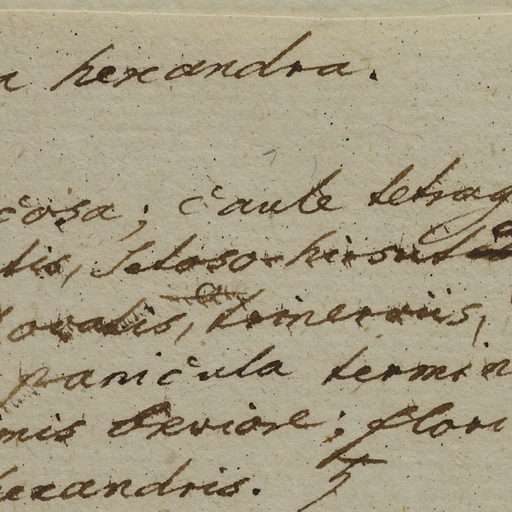 a hexandra.
cosa; caule tetrag
tis, setoso-hirsut
ovalis, trinerviis,
panicula termin
mis breviore; flori
hexandris. ♄